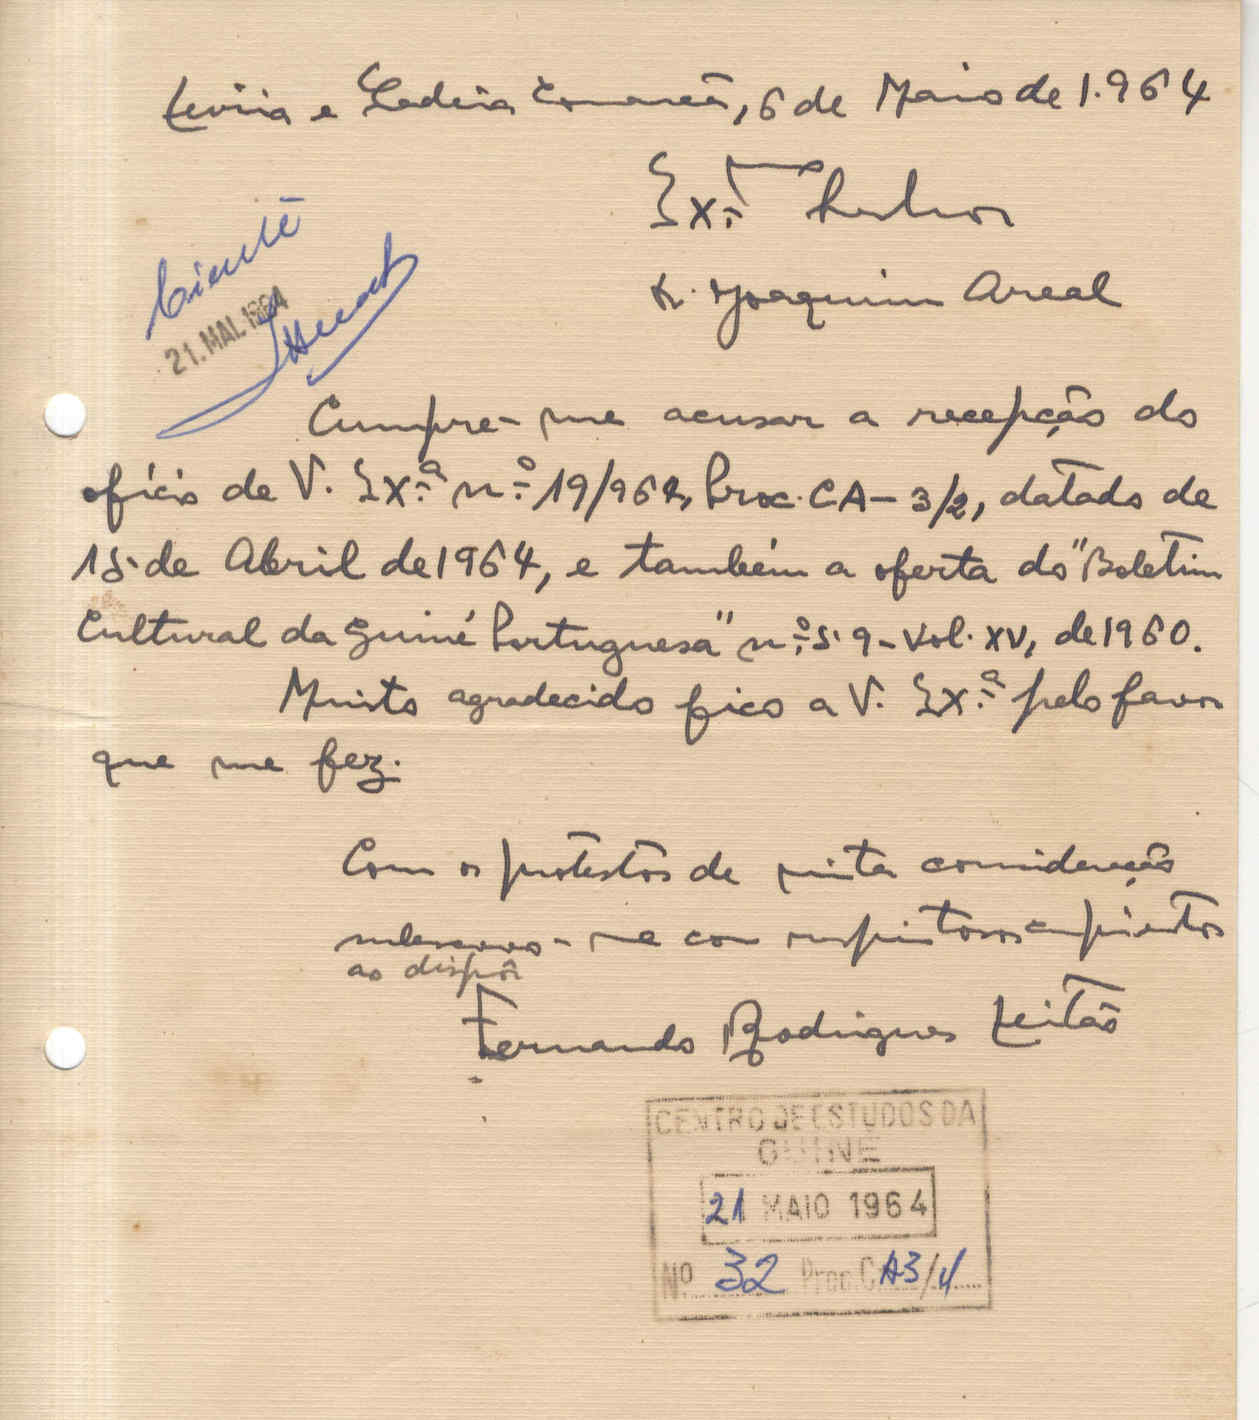 e Ladeia 6 de Maio de 1.964
Ex.mo Senhor
Dr. Joaquim Areal
Ciente
21. MAI. 1964
Cumpre-me acusar a recepção do
ofício de V. Ex.ª n.º 19/964, Proc. CA-3/2, datado de
15 de Abril de 1964, e também a oferta do "Boletim
Cultural da Guiné Portuguesa" n.º 59 - Vol. XV, de 1960.
Muito agradecido fico a V. Ex.ª pelo favor
que me fez.
Com os protestos de muita consideração
subscrevo-me com respeitosos cumprimentos
ao dispôr
Fernando Rodrigues Leitão
CENTRO DE ESTUDOS DA
GUINÉ
21 MAIO 1964
Nº 32 Proc. CA3/